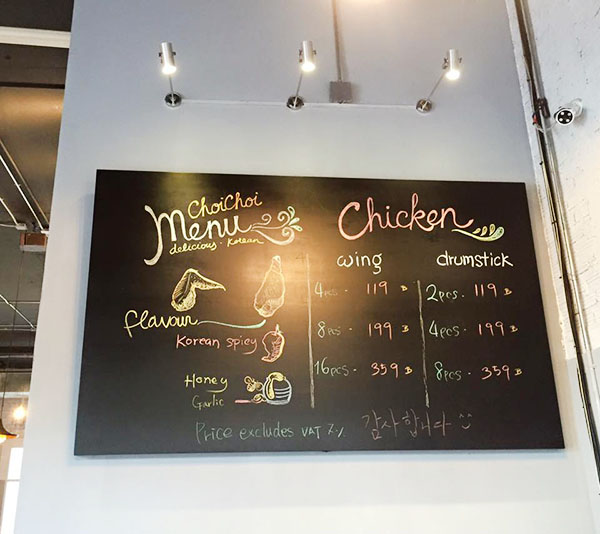 ChoiChoi
Menu
delicious · Korean
flavour
Korean spicy
Honey
Garlic
Chicken
wing
4pcs. 119 ฿
8pcs. 199 ฿
16pcs. 359 ฿
drumstick
2pcs. 119 ฿
4pcs. 199 ฿
8pcs. 359 ฿
Price excludes VAT 7% 감사합니다